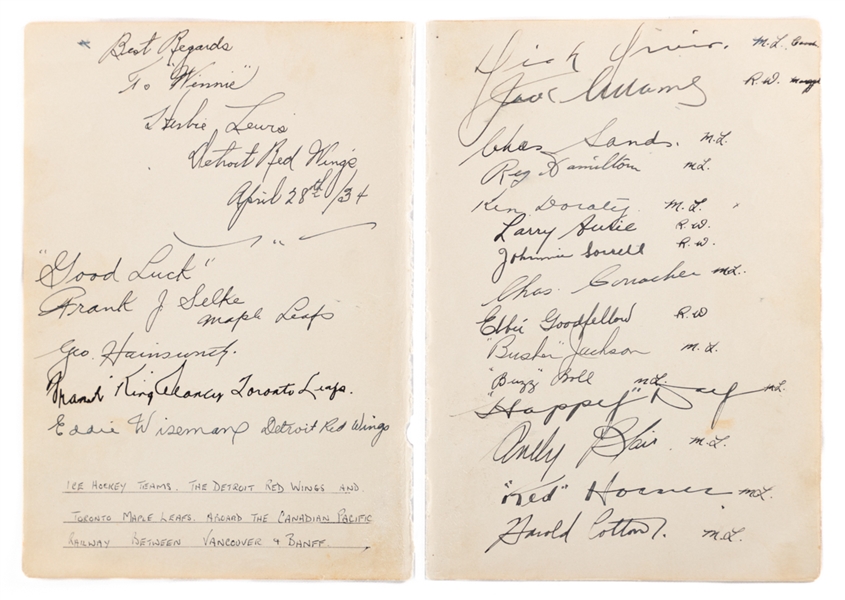 Best Regards
To "Winnie"
Herbie Lewis
Detroit Red Wings
April 28th/34
"Good Luck"
Frank J Selke
Maple Leafs
Geo. Hainsworth.
"King" Clancy Toronto Leafs.
Eddie Wiseman Detroit Red Wings
ICE HOCKEY TEAMS. THE DETROIT RED WINGS AND
TORONTO MAPLE LEAFS. ABOARD THE CANADIAN PACIFIC
RAILWAY BETWEEN VANCOUVER & BANFF.
Dick Irvin. M.L. Coach
Jack Adams R.W.
Chas Sands. M.L.
Reg Hamilton M.L.
Ken Doraty M.L.
Larry Aurie R.W.
Johnnie Sorrell R.W.
Chas. Conacher M.L.
Ebbie Goodfellow R.W
"Busher" Jackson M.L.
"Buzz" Boll M.L.
"Happy" Day M.L.
Andy Blair M.L.
"Red" Horner M.L.
Harold Cotton. M.L.